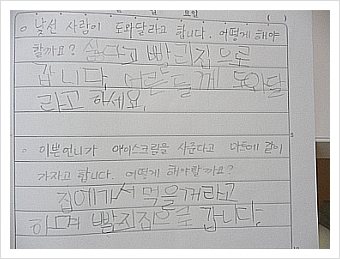 ○ 낯선 사람이 도와달라고 합니다. 어떻게 해야
할까요? 싫다고 빨리집으로
갑니다. 어른들께 도와달
라고 하세요.
○ 이쁜언니가 아이스크림을 사준다고 나에게 같이
가자고 합니다. 어떻게 해야할까요?
집에가서 먹을꺼라고
하며 빨리집으로 갑니다.